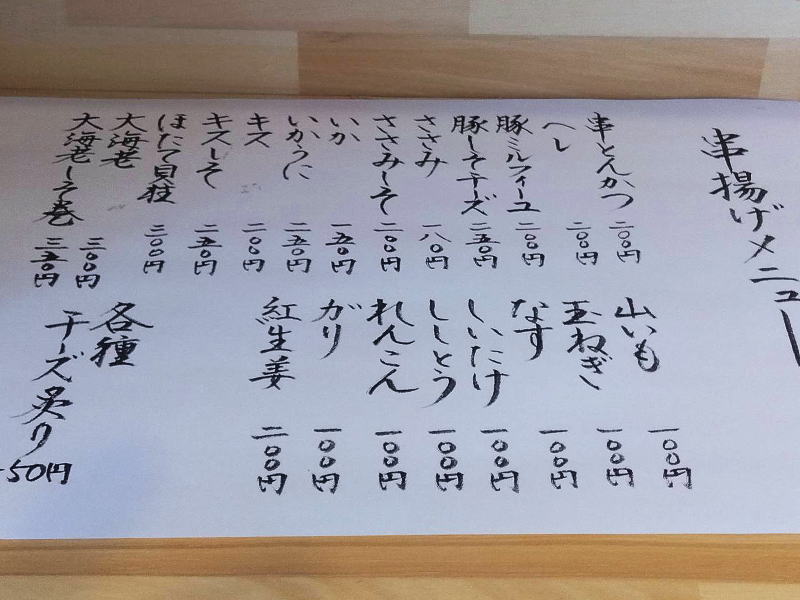 串揚げメニュー
串とんかつ 二〇〇円
ヘレ 二〇〇円
豚ミルフィーユ 二〇〇円
豚しそチーズ 二五〇円
ささみ 一八〇円
ささみしそ 二〇〇円
いか 一五〇円
いかうに 二五〇円
キス 二〇〇円
キスしそ 二五〇円
ほたて貝柱 三〇〇円
大海老 三〇〇円
大海老しそ巻 三五〇円
山いも 一〇〇円
玉ねぎ 一〇〇円
なす 一〇〇円
しいたけ 一〇〇円
ししとう 一〇〇円
れんこん 一〇〇円
がり 一〇〇円
紅生姜 二〇〇円
各種
チーズ炙り
50円